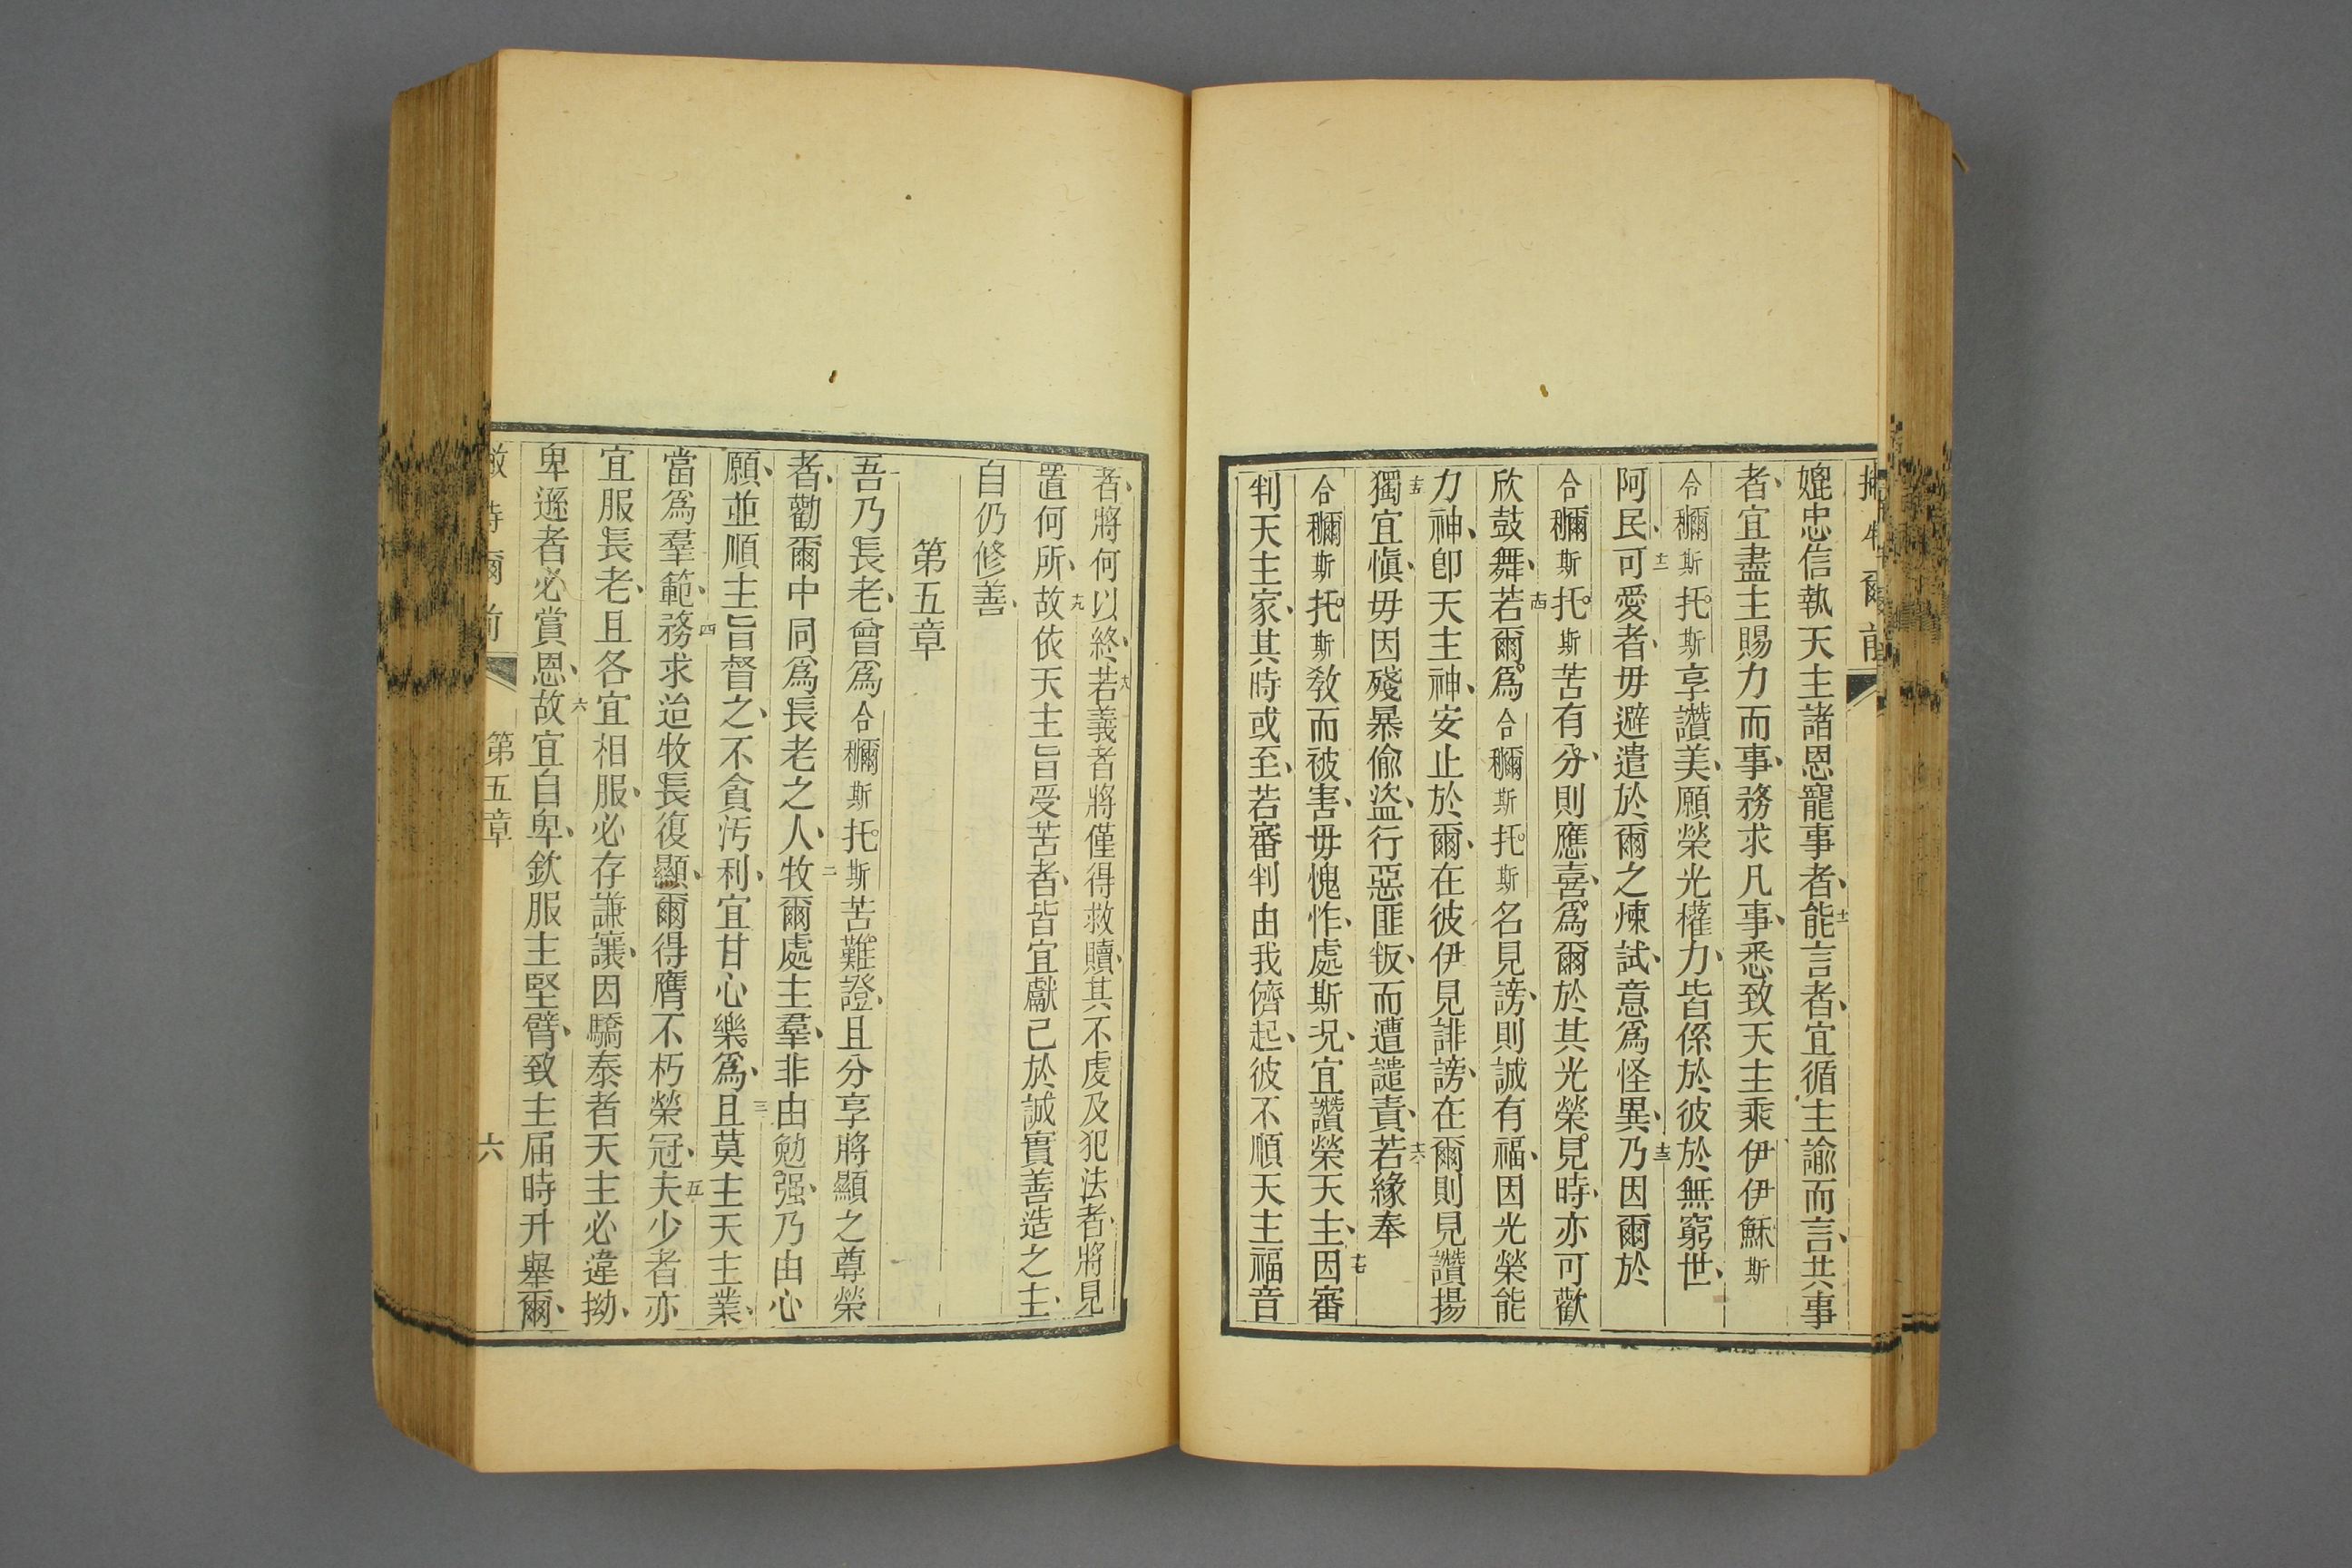 媲忠信執天主諸恩寵事者、十一能言者、宜循主諭而言、共事
者、宜盡主賜力而事、務求凡事、悉致天主乘伊伊穌斯
合𥽬斯托斯享讚美、願榮光權力、皆係於彼於無窮世、
阿民、十二可愛者、毋避遣於爾之煉試、意爲怪異、十三乃因爾於
合𥽬斯托斯苦有分、則應喜、爲爾於其光榮見時、亦可歡
欣鼓舞、十四若爾爲合𥽬斯托斯名見謗、則誠有福、因光榮能
力神、卽天主神、安止於爾、在彼伊見誹謗、在爾則見讚揚
十五獨宜愼、毋因殘暴偷盜、行惡匪叛、而遭譴責、十六若緣奉
合𥽬斯托斯教而被害、毋愧怍、處斯況、宜讚榮天主、十七因審
判天主家、其時或至、若審判由我儕起、彼不順天主福音
者、將何以終、十八若義者將僅得救贖、其不虔及犯法者、將見
置何所、十九故依天主旨受苦者、皆宜獻己於誠實善造之主、
自仍修善、
第五章
一吾乃長老、曾爲合𥽬斯托斯苦難證、且分享將顯之尊榮
者、勸爾中同爲長老之人、二牧爾處主羣、非由勉强、乃由心
願、並順主旨督之、不貪汚利、宜甘心樂爲、三且莫主天主業、
當爲羣範、四務求迨牧長復顯、爾得膺不朽榮冠、五夫少者亦
宜服長老、且各宜相服、必存謙讓、因驕泰者天主必違拗、
卑遜者必賞恩、六故宜自卑、欽服主堅臂、致主届時升舉爾、
爾前
第五章
六